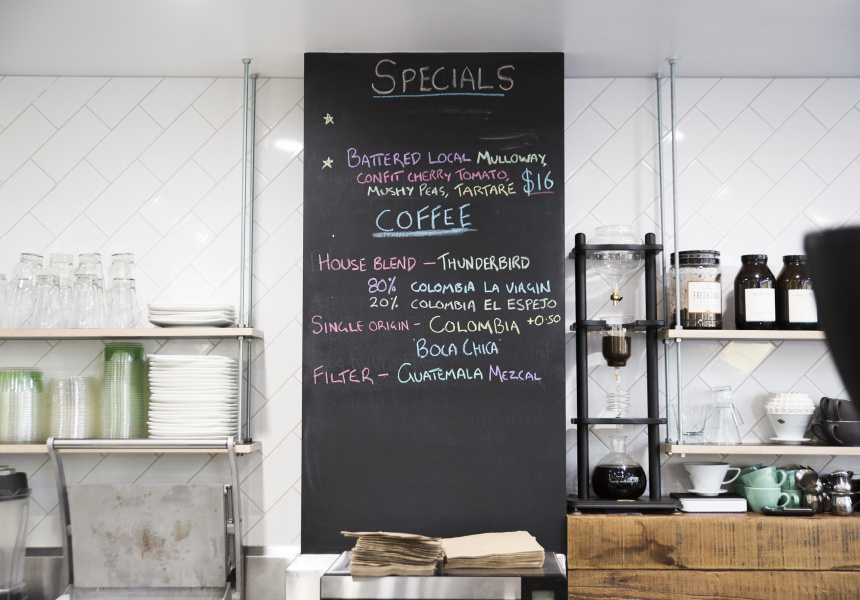 SPECIALS
BATTERED LOCAL MULLOWAY,
CONFIT CHERRY TOMATO,
MUSHY PEAS, TARTARE $16
COFFEE
HOUSE BLEND - THUNDERBIRD
80% COLOMBIA LA VIRGIN
20% COLOMBIA EL ESPEJO
SINGLE ORIGIN - COLOMBIA +0.50
'BOCA CHICA'
FILTER - GUATEMALA MEZCAL